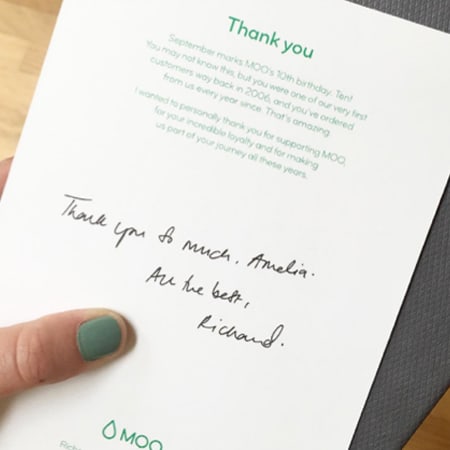 Thank you
September marks MOO's 10th birthday. Ten!
You may not know this, but you were one of our very first
customers way back in 2006, and you've ordered
from us every year since. That's amazing.
I wanted to personally thank you for supporting MOO,
for your incredible loyalty and for making
us part of your journey all these years.
Thank you so much, Amelia.
All the best,
Richard.
MOO